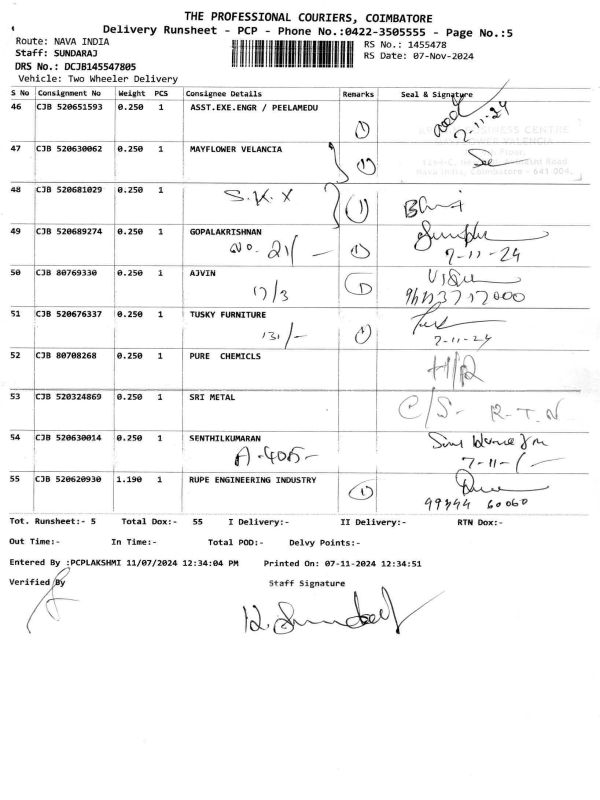 THE PROFESSIONAL COURIERS, COIMBATORE
Delivery Runsheet - PCP - Phone No.:0422-3505555 - Page No.:5
Route: NAVA INDIA
RS No.: 1455478
Staff: SUNDARAJ
RS Date: 07-Nov-2024
DRS No.: DCJB145547805
Vehicle: Two Wheeler Delivery
S No Consignment No Weight PCS Consignee Details Remarks Seal & Signature
46 CJB 520651593 0.250 1 ASST.EXE.ENGR / PEELAMEDU
(1) 7-11-24
47 CJB 520630062 0.250 1 MAYFLOWER VELANCIA
(1)
48 CJB 520681029 0.250 1
S.K.X (1)
49 CJB 520689274 0.250 1 GOPALAKRISHNAN
No. 21/- (1) 7-11-24
50 CJB 80769330 0.250 1 AJVIN
17/3
51 CJB 520676337 0.250 1 TUSKY FURNITURE
131/- (1) 7-11-24
52 CJB 80708268 0.250 1 PURE CHEMICLS
53 CJB 520324869 0.250 1 SRI METAL
C/S- R.T.N
54 CJB 520630014 0.250 1 SENTHILKUMARAN
A-405- 7-11-/-
55 CJB 520620930 1.190 1 RUPE ENGINEERING INDUSTRY
(1) 99944 60060
Tot. Runsheet:- 5 Total Dox:- 55 I Delivery:- II Delivery:- RTN Dox:-
Out Time:- In Time:- Total POD:- Delvy Points:-
Entered By :PCPLAKSHMI 11/07/2024 12:34:04 PM Printed On: 07-11-2024 12:34:51
Verified By Staff Signature